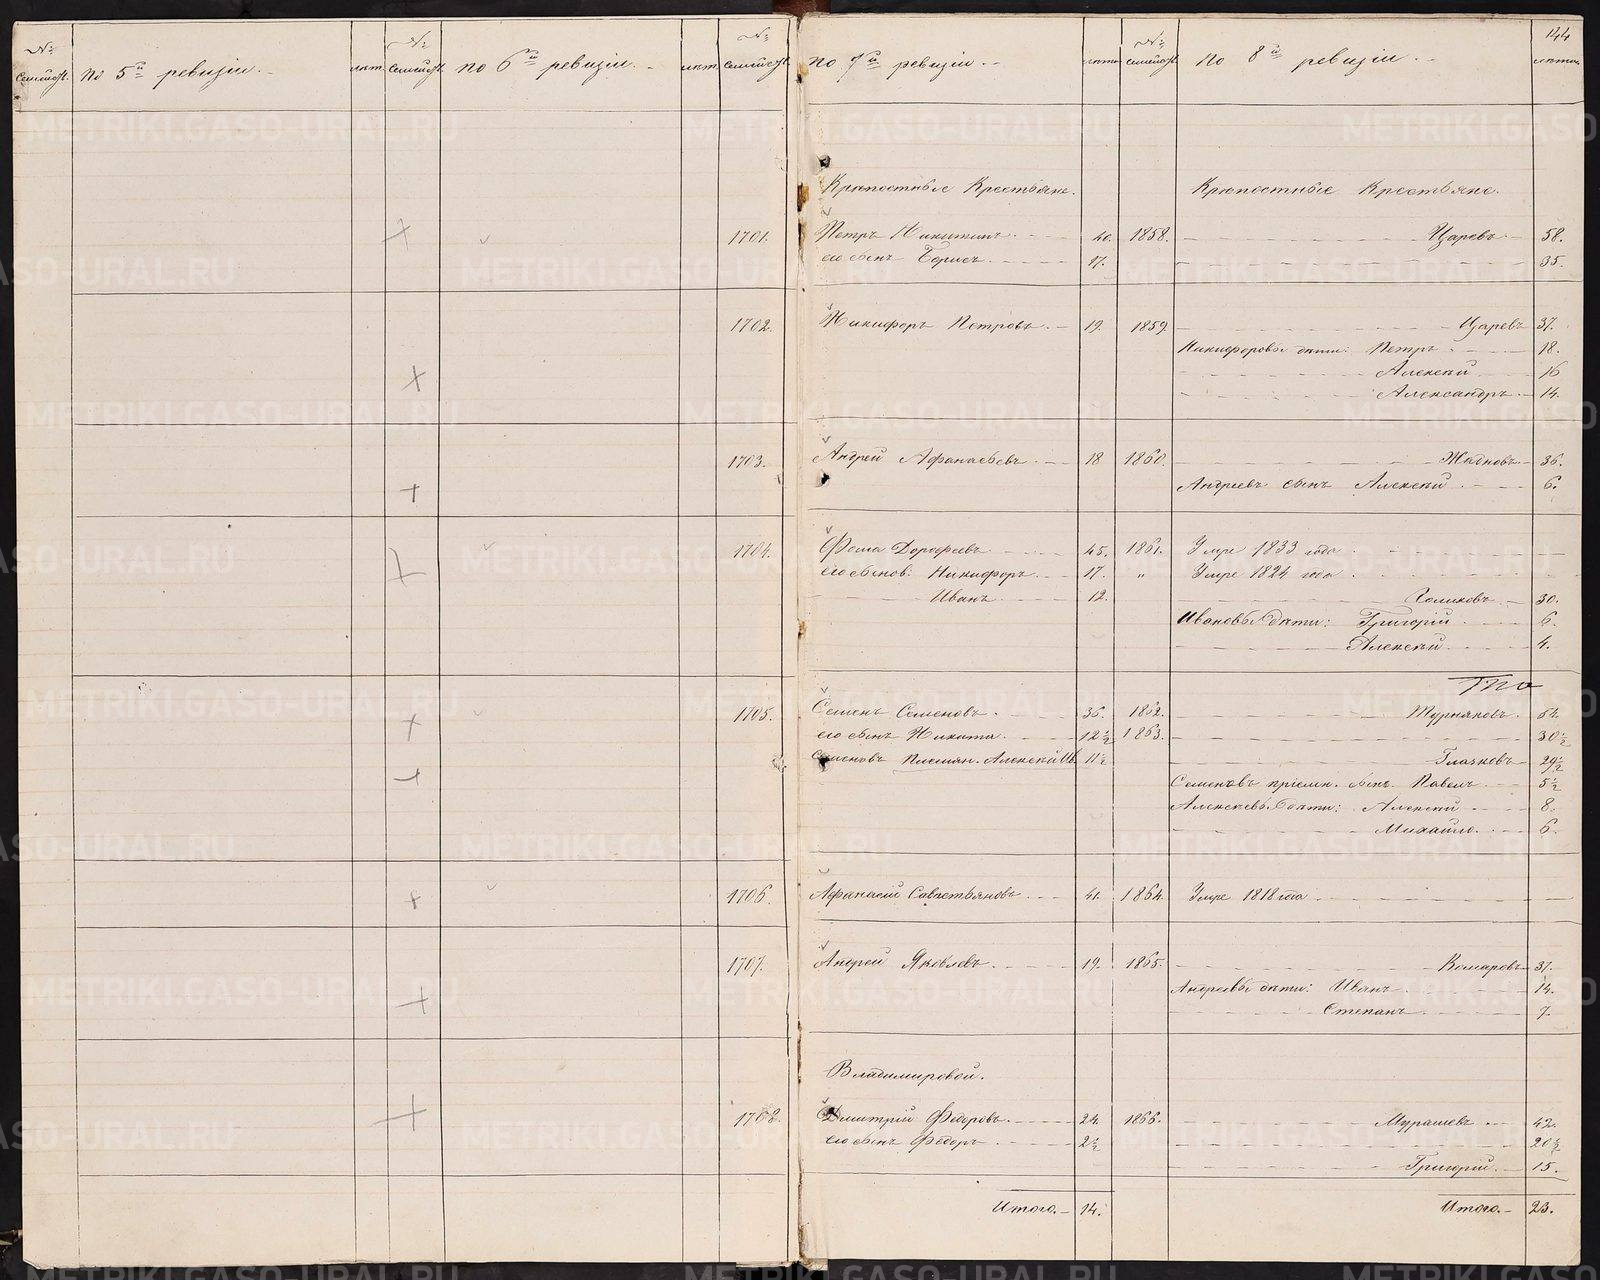 144
№ семейст. По 5й ревизiи. лѣт. № семейст. По 6й ревизiи. лѣт. № семейст. По 7й ревизiи. лѣта № семейст. По 8й ревизiи. лѣта
Крѣпостные Крестьяне. Крѣпостные Крестьяне.
1701. Петръ Никитинъ. 40. 1858. Царевъ 58.
его сынъ Борисъ. 17. 35.
1702. Никифоръ Петровъ. 19. 1859. Царевъ 37.
Никифоровы дѣти: Петръ. 18.
Алексѣй 16
Александръ 14.
1703. Андрей Афанасьевъ. 18 1860. 36.
Андреевъ сынъ Алексѣй 6.
1704. Фома Дорофеевъ 45. 1861. Умре 1833 года
его сынов: Никифоръ 17. " Умре 1824 года
Иванъ. 12. 30.
Ивановы дѣти: Григорiй 6.
Алексѣй 4.
1705. Семенъ Семеновъ. 36. 1862. 54.
его сынъ Никита. 12½ 1863. 30½
Семеновъ племян. Алексѣй Ив. 11½ Глазковъ 29½
Семеновъ прiемн. сынъ Павелъ 5½
Алексѣевы дѣти: Алексѣй 8.
Михайло. 6.
1706. Афанасiй Савастьяновъ 41. 1864. Умре 1818 года
1707. Андрей Яковлевъ. 19. 1865. Комаровъ 37.
Андреевы дѣти: Иванъ. 14.
Степанъ 7.
Владимировой.
1708. Дмитрiй Федоровъ. 24. 1866. Мурашевъ 42.
его сынъ Федоръ. 2½ 20½
Григорiй. 15.
Итого. 14. Итого. 23.
METRIKI.GASO-URAL.RU